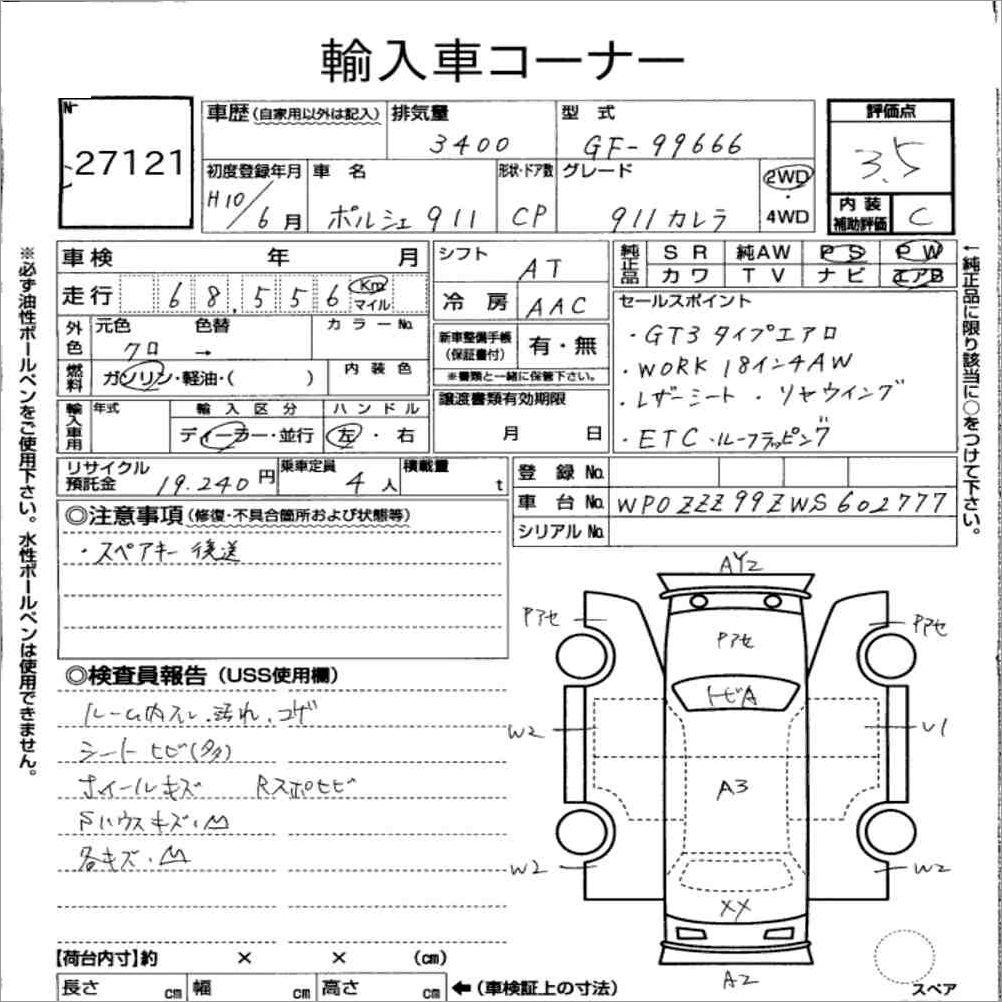 輸入車コーナー
27121
車歴(自家用以外は記入) 排気量 3400 型式 GF-99666
評価点 3.5
初度登録年月 H10/6月 車名 ポルシェ911 形状・ドア数 CP グレード 911カレラ 2WD・4WD
内装補助評価 C
車検 年 月
シフト AT
純正品 SR 純AW PS PW
カワ TV ナビ エアB
走行 68,556 Km マイル
冷房 AAC
外色 元色 クロ 色替 → カラーNo.
新車整備手帳(保証書付) 有・無
※書類と一緒に保管下さい。
燃料 ガソリン・軽油・( ) 内装色
セールスポイント
・GT3タイプエアロ
・WORK 18インチAW
・レザーシート ・リヤウイング
・ETC・ルーフラッピング
輸入車用 年式 輸入区分 ディーラー・並行 ハンドル 左・右
譲渡書類有効期限 月 日
リサイクル預託金 19.240円 乗車定員 4人 積載量 t
登録No.
車台No. WP0ZZZ99ZWS602777
シリアルNo.
◎注意事項(修復・不具合箇所および状態等)
・スペアキー後送
◎検査員報告(USS使用欄)
ルーム内スレ、汚れ、コゲ
シートヒビ(多)
ホイールキズ Rスポヒビ
各キズ・凹
AY2
Pアセ Pアセ Pアセ
トビA
W2 U1
A3
W2 W2
XX
A2
スペア
【荷台内寸】約 × × (cm)
長さ cm 幅 cm 高さ cm ←(車検証上の寸法)
※必ず油性ボールペンをご使用下さい。水性ボールペンは使用できません。
←純正品に限り該当に○をつけて下さい。